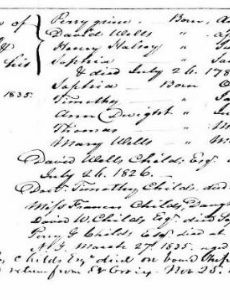 of { Perry grine - Born, A
Daniel Wells "
Henry Halsey "
his Sophia "
& died July 26. 178
Sophia - Born
1835. Timothy "
Ann Dwight "
Thomas "
Mary Wells "
David Wells Childs, Esq.
July 26. 1826.-
Doct. Timothy Childs, died
Miss Frances Childs, Daug
David W. Childs, Esq. died
Perry G Childs, Esq. died at
N.Y. March 27th 1835. aged
Childs Esq. died on board
return from St Croix. Nov 25.